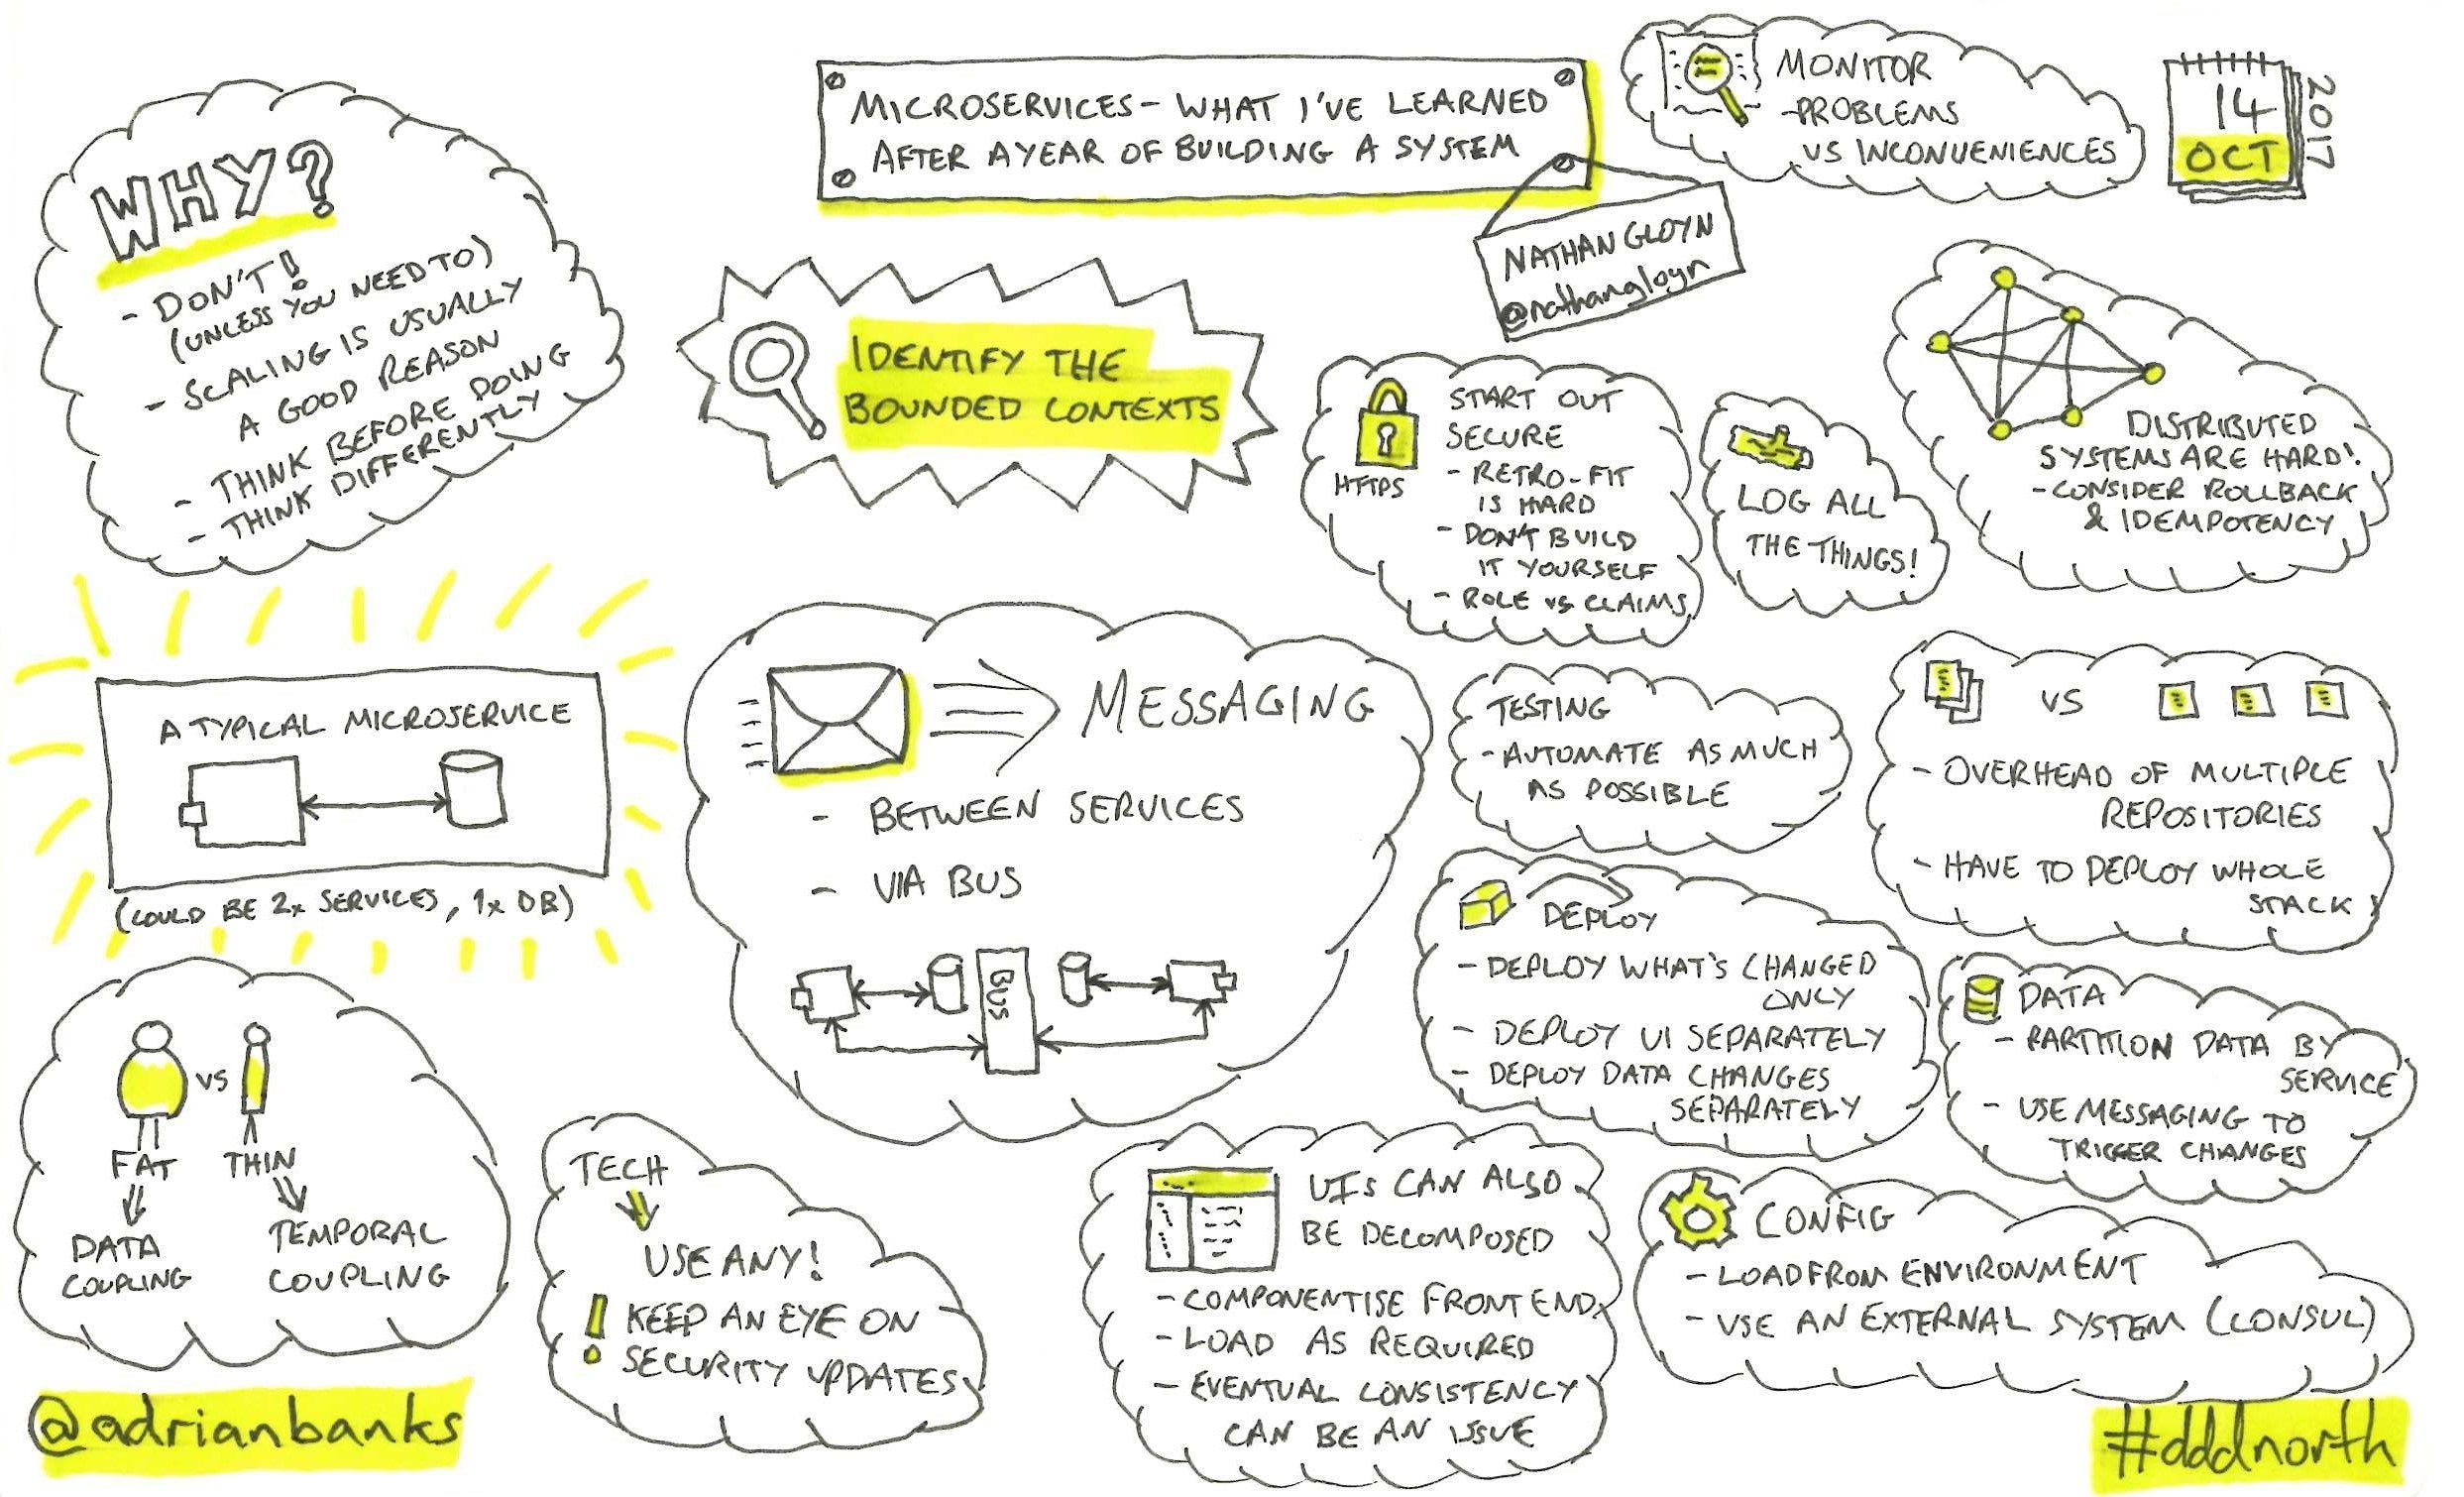 MICROSERVICES - WHAT I'VE LEARNED
AFTER A YEAR OF BUILDING A SYSTEM
NATHAN GLOYN
@nathangloyn
MONITOR
- PROBLEMS
VS INCONVENIENCES
14
OCT
2017
WHY?
- DON'T!
(UNLESS YOU NEED TO)
- SCALING IS USUALLY
A GOOD REASON
- THINK BEFORE DOING
- THINK DIFFERENTLY
IDENTIFY THE
BOUNDED CONTEXTS
HTTPS
START OUT
SECURE
- RETRO-FIT
IS HARD
- DON'T BUILD
IT YOURSELF
- ROLE VS CLAIMS
LOG ALL
THE THINGS!
DISTRIBUTED
SYSTEMS ARE HARD!
- CONSIDER ROLLBACK
& IDEMPOTENCY
A TYPICAL MICROSERVICE
(COULD BE 2x SERVICES, 1x DB)
MESSAGING
- BETWEEN SERVICES
- VIA BUS
BUS
TESTING
- AUTOMATE AS MUCH
AS POSSIBLE
VS
- OVERHEAD OF MULTIPLE
REPOSITORIES
- HAVE TO DEPLOY WHOLE
STACK
DEPLOY
- DEPLOY WHAT'S CHANGED
ONLY
- DEPLOY UI SEPARATELY
- DEPLOY DATA CHANGES
SEPARATELY
DATA
- PARTITION DATA BY
SERVICE
- USE MESSAGING TO
TRIGGER CHANGES
VS
FAT THIN
DATA
COUPLING
TEMPORAL
COUPLING
TECH
USE ANY!
! KEEP AN EYE ON
SECURITY UPDATES
UIs CAN ALSO
BE DECOMPOSED
- COMPONENTISE FRONT END
- LOAD AS REQUIRED
- EVENTUAL CONSISTENCY
CAN BE AN ISSUE
CONFIG
- LOAD FROM ENVIRONMENT
- USE AN EXTERNAL SYSTEM (CONSUL)
@adrianbanks
#dddnorth